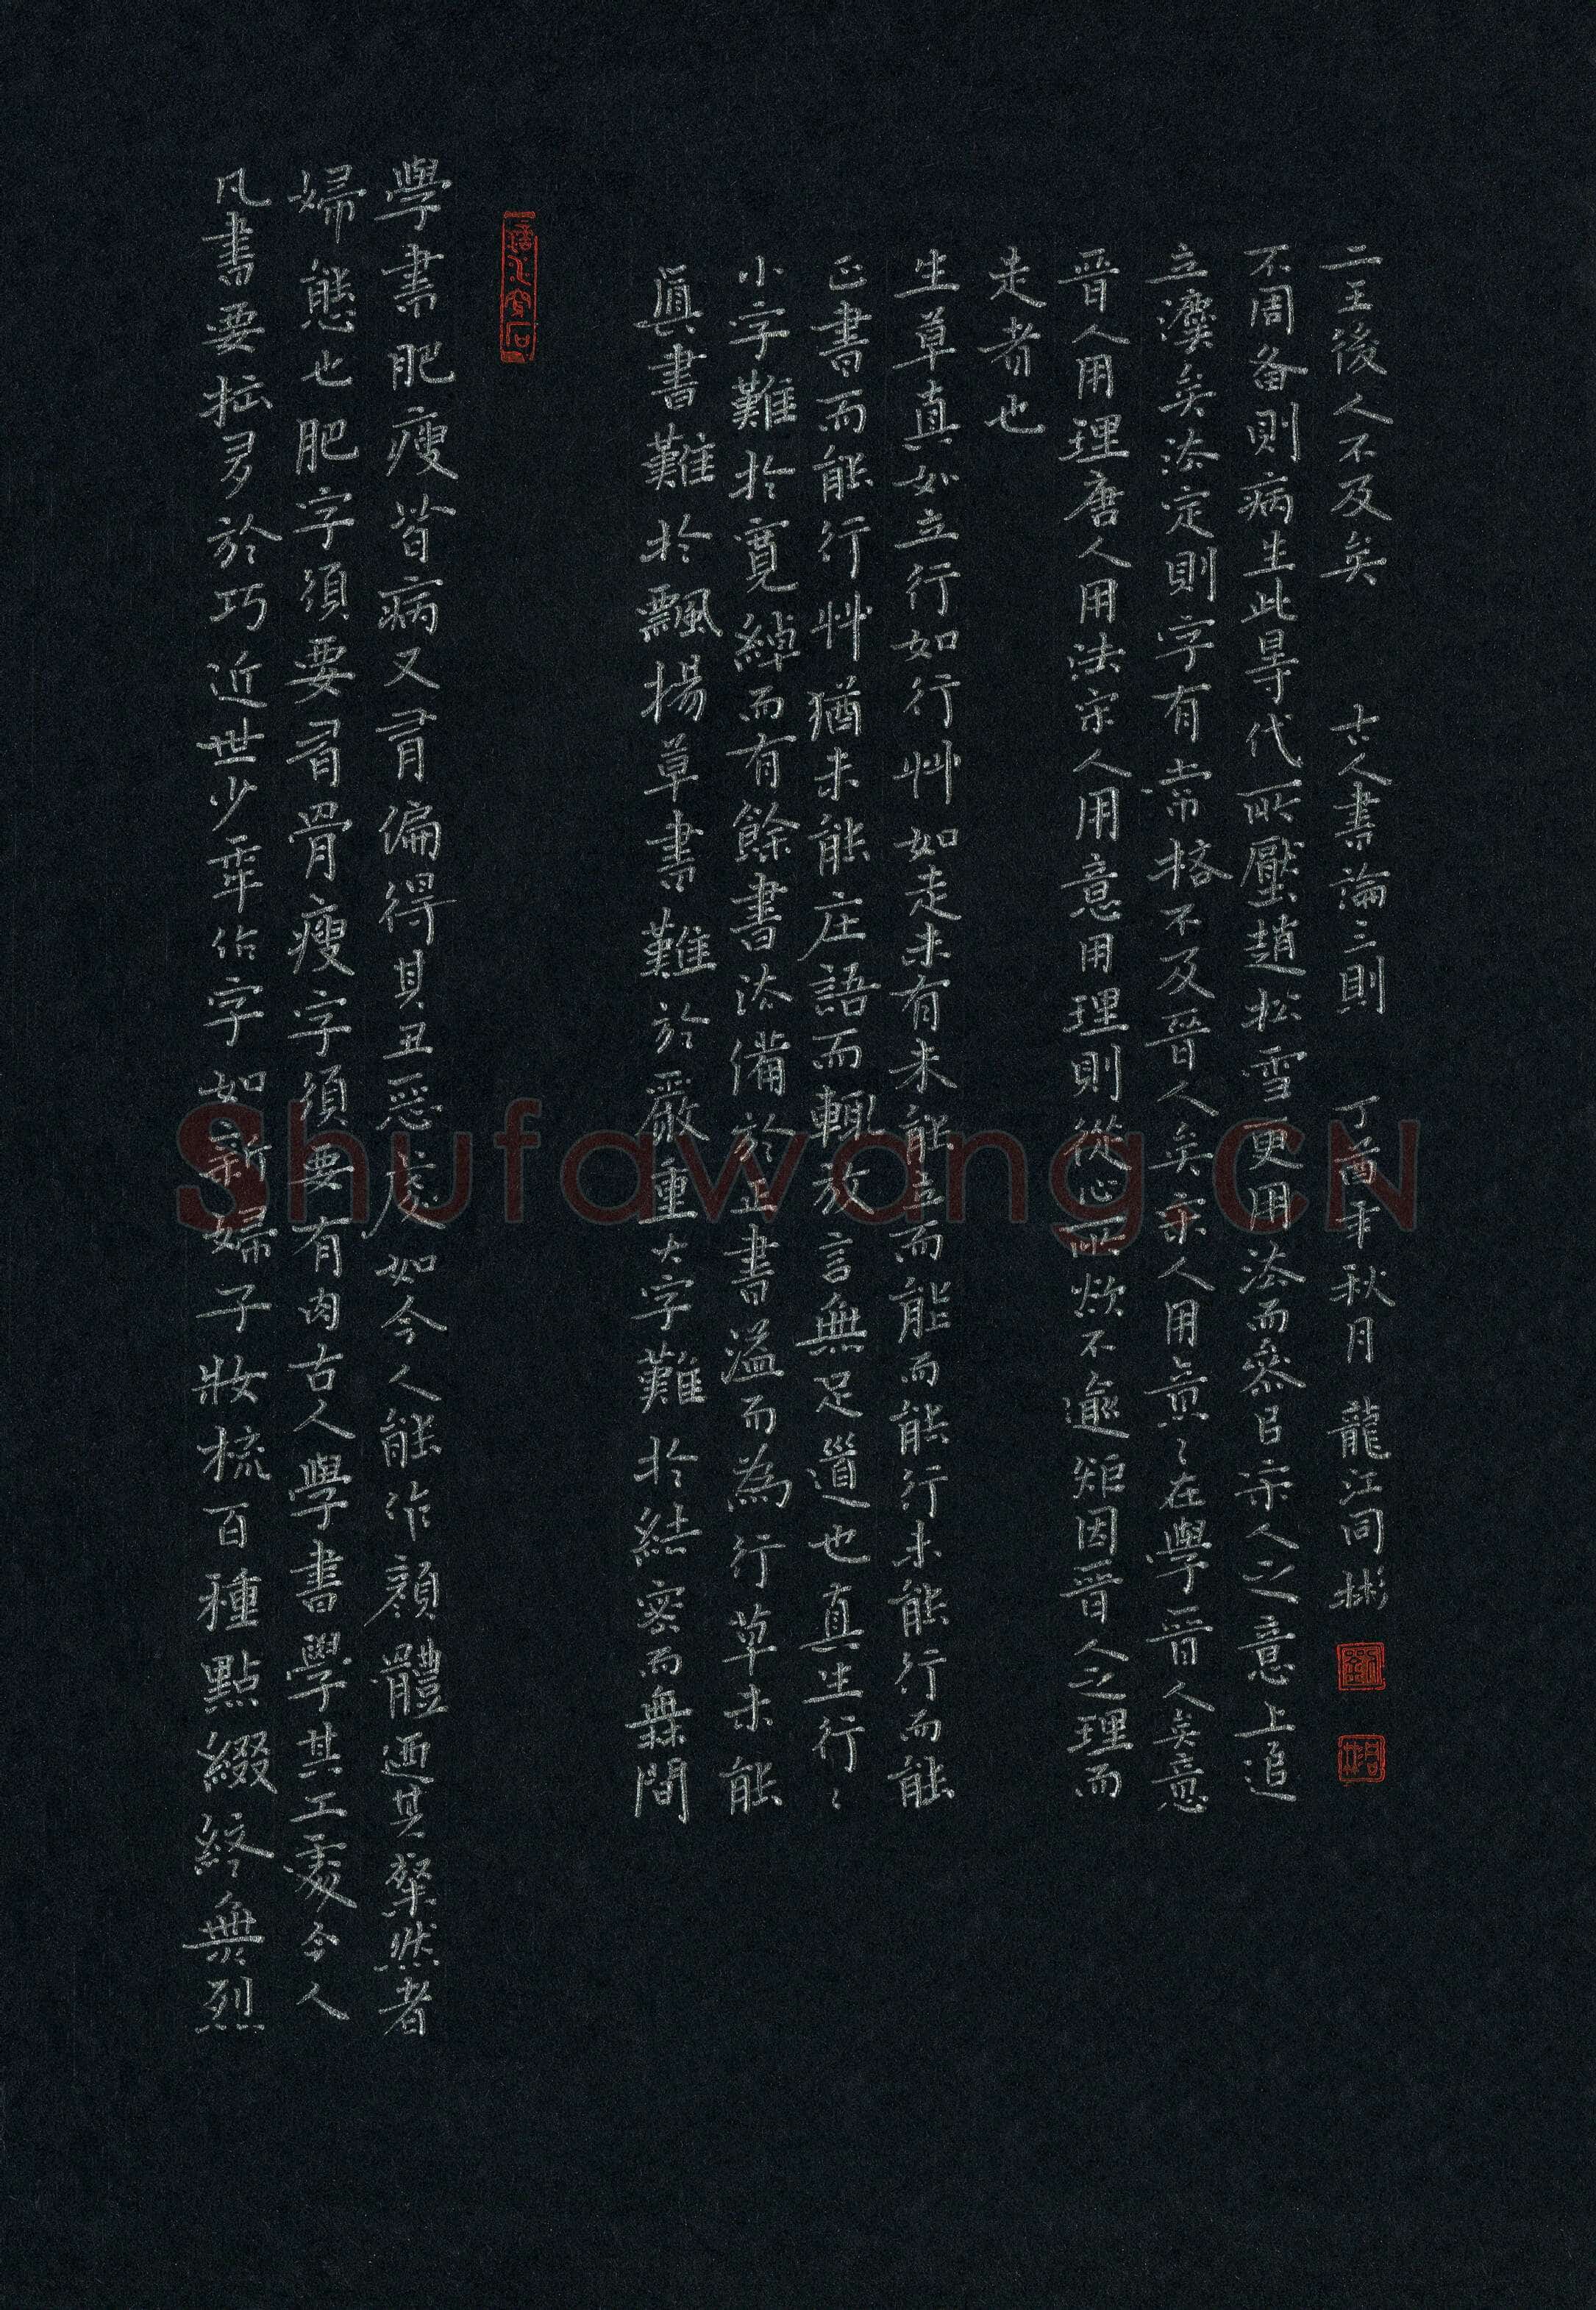 凡書要拙多於巧近世少年作字如新婦子妝梳百種點綴終無烈
婦態也肥字須要有骨瘦字須要有肉古人學書學其工處今人
學書肥瘦皆病又有偏得其丑惡處如今人能作顏體迺其粲然者
滴水穿石
真書難於飄揚草書難於嚴重大字難於結密而無間
小字難於寬綽而有餘書法備於正書溢而為行草未能
正書而能行艸猶未能庄語而輒放言無足道也真生行〻
生草真如立行如行艸如走未有未能立而能而能行未能行而能
走者也
晉人用理唐人用法宋人用意用理則從心所欲不逾矩因晉人之理而
立灋矣法定則字有常格不及晉人矣宋人用意〻在學晉人矣意
不周备則病生此時代所壓趙松雪更用法而參㠯宋人之意上追
二王後人不及矣 古人書論三則 丁酉年秋月 龍江同彬
劉
同彬
Shufawang.CN